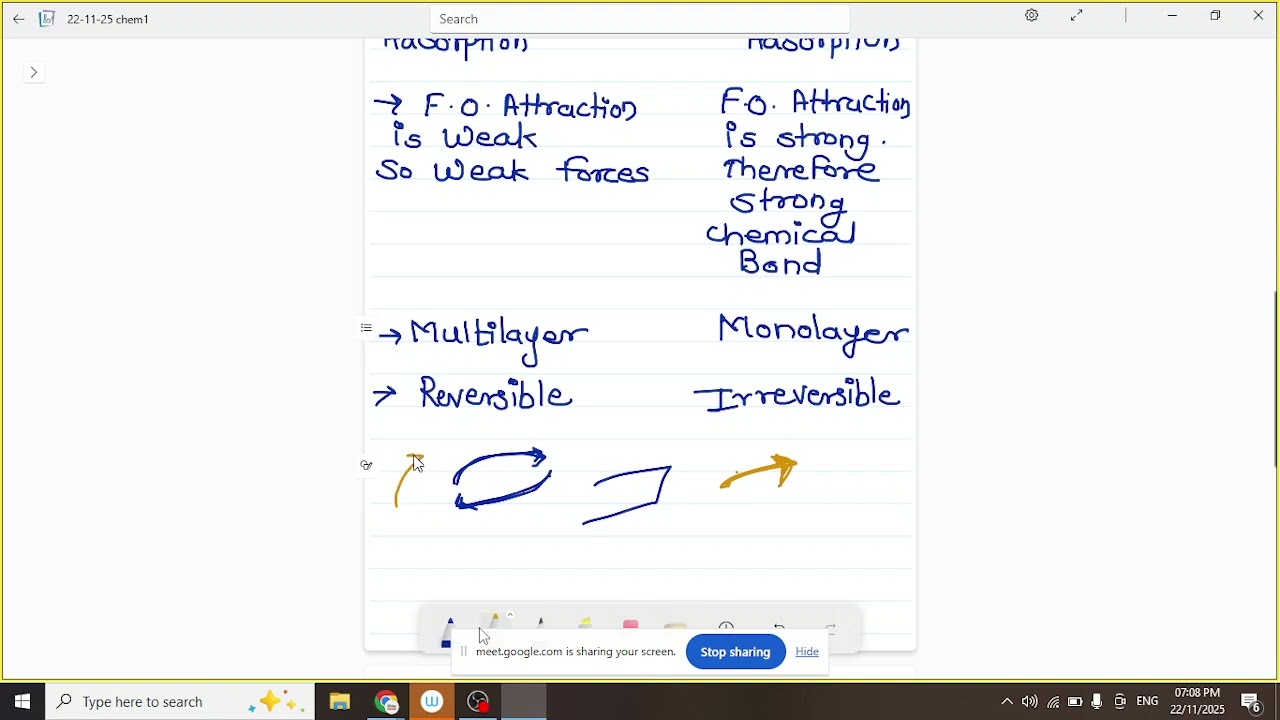 22-11-25 chem1
Search
Adsorption Adsorption
→ F.O. Attraction F.O. Attraction
is weak is strong.
So weak forces Therefore
strong
chemical
Bond
→ Multilayer Monolayer
→ Reversible Irreversible
meet.google.com is sharing your screen. Stop sharing Hide
Type here to search
ENG 07:08 PM
22/11/2025 6